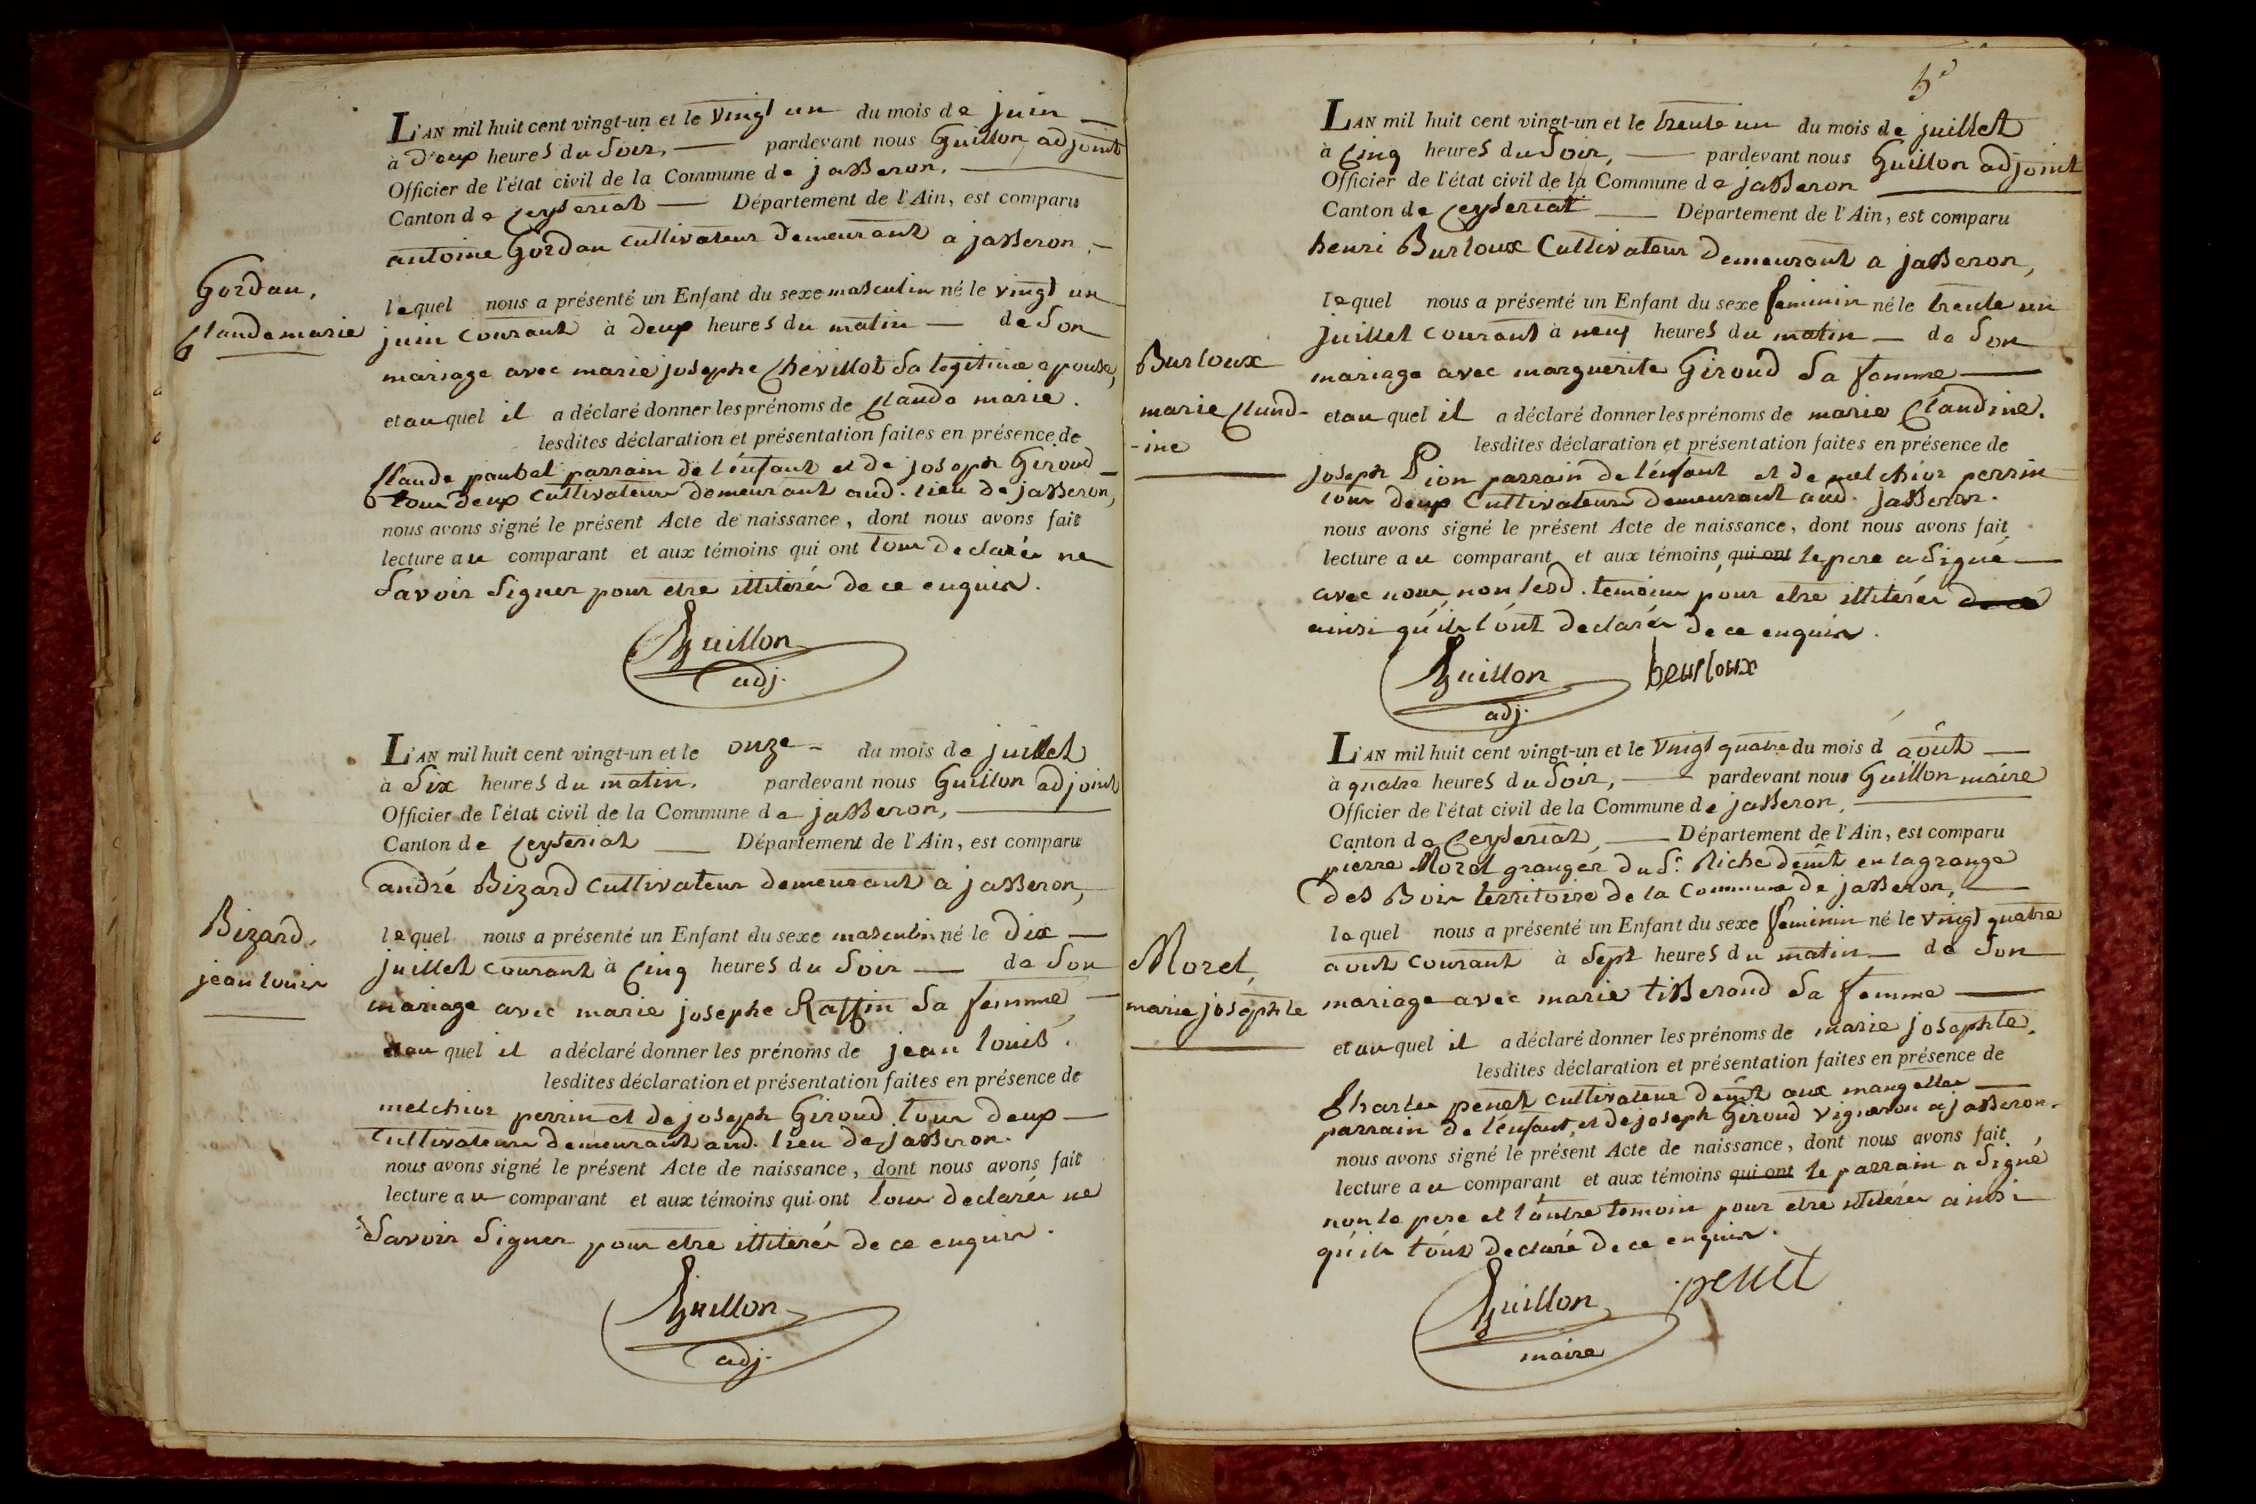 L'AN mil huit cent vingt-un et le vingt un du mois de juin
à deux heures du Soir, pardevant nous Guillon adjoint
Officier de l'état civil de la Commune de jasseron,
Canton de Ceyseriat Département de l'Ain, est comparu
antoine Gordan cultivateur demeurant a jasseron,
Gordan,
Claude marie
lequel nous a présenté un Enfant du sexe masculin né le vingt un
juin courant à deux heures du matin de Son
mariage avec marie josephe Chevillot Sa legitime epouse,
et au quel il a déclaré donner les prénoms de Claude marie.
lesdites déclaration et présentation faites en présence de
Claude paubel parrain de l'énfant et de joseph Giroud
tous deux cultivateurs demeurant aud. lieu de jasseron,
nous avons signé le présent Acte de naissance, dont nous avons fait
lecture au comparant et aux témoins qui ont tous declarés ne
Savoir Signer pour etre illiterés de ce enquis.
Guillon
adj.
L'AN mil huit cent vingt-un et le onze du mois de juillet
à Six heures du matin. pardevant nous Guillon adjoint
Officier de l'état civil de la Commune de jasseron,
Canton de Ceyseriat Département de l'Ain, est comparu
andré Bizard cultivateur demeurant a jasseron,
Bizard,
jean louis
lequel nous a présenté un Enfant du sexe masculin né le Dix
juillet courant à Cinq heures du Soir de Son
mariage avec marie josephe Raffin Sa femme,
et au quel il a déclaré donner les prénoms de jean louis.
lesdites déclaration et présentation faites en présence de
melchior perrin et de joseph Giroud tous deux
cultivateurs demeurant aud. lieu de jasseron.
nous avons signé le présent Acte de naissance, dont nous avons fait
lecture au comparant et aux témoins qui ont tous declarés ne
Savoir Signer pour etre illiterés de ce enquis.
Guillon
adj.
5e
L'AN mil huit cent vingt-un et le trente un du mois de juillet
à Cinq heures du Soir, pardevant nous Guillon adjoint
Officier de l'état civil de la Commune de jasseron
Canton de Ceyseriat Département de l'Ain, est comparu
henri Burloux Cultivateur demeurant a jasseron,
lequel nous a présenté un Enfant du sexe feminin né le trente un
juillet courant à neuf heures du matin de Son
Burloux
marie Claud-
-ine
mariage avec marguerite Giroud Sa femme
et au quel il a déclaré donner les prénoms de marie Claudine.
lesdites déclaration et présentation faites en présence de
joseph Pion parrain de l'énfant et de melchior perrin
tous deux cultivateurs demeurant aud. jasseron.
nous avons signé le présent Acte de naissance, dont nous avons fait
lecture au comparant et aux témoins, qui ont le pere a Signé
avec nous, non lesd. temoins pour etre illiterés de ce
ainsi qu'ils l'ont declarés de ce enquis.
Guillon burloux
adj.
L'AN mil huit cent vingt-un et le vingt quatre du mois d'août
à quatre heures du Soir, pardevant nous Guillon maire
Officier de l'état civil de la Commune de jasseron,
Canton de Ceyseriat, Département de l'Ain, est comparu
pierre Morel granger du Sr. Riche demt en la grange
des Bois territoire de la Commune de jasseron,
lequel nous a présenté un Enfant du sexe feminin né le vingt quatre
Morel
marie josephte
aout courant à Sept heures du matin de Son
mariage avec marie tisserand Sa femme
et au quel il a déclaré donner les prénoms de marie josephte.
lesdites déclaration et présentation faites en présence de
Charles penet cultivateur demt aux mangettes
parrain de l'énfant, et de joseph Giroud vigneron a jasseron.
nous avons signé le présent Acte de naissance, dont nous avons fait
lecture au comparant et aux témoins qui ont le parrain a Signé,
non le pere et l'autre temoin pour etre illiterés ainsi
qu'ils l'ont declaré de ce enquis.
Guillon penet
maire